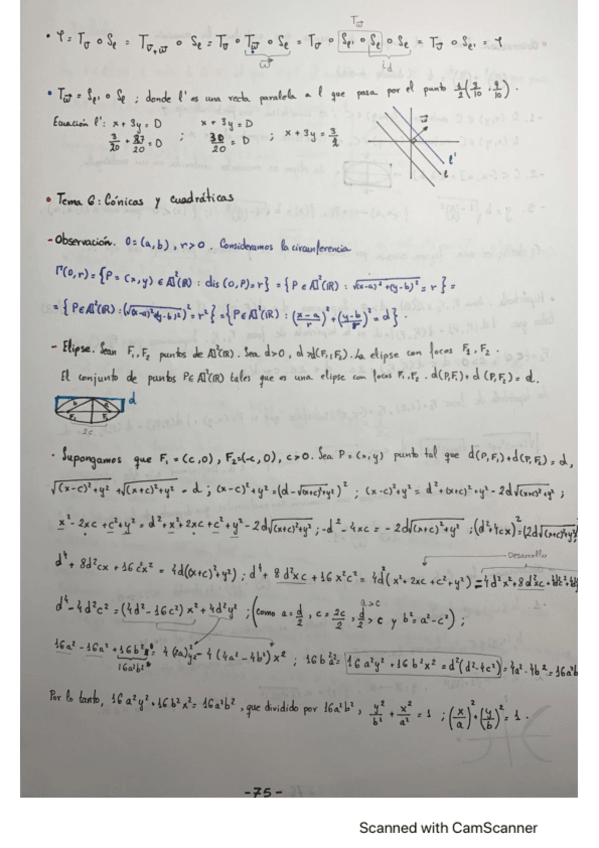 T_w̄
• Ψ = T_v̄ ∘ S_ℓ = T_{v̄+w̄} ∘ S_ℓ = T_v̄ ∘ T_w̄ ∘ S_ℓ = T_v̄ ∘ S_ℓ' ∘ S_ℓ ∘ S_ℓ = T_v̄ ∘ S_ℓ' = Ψ
w̄ id
• T_w̄ = S_ℓ' ∘ S_ℓ ; donde l' es una recta paralela a l que pasa por el punto 1/2 (3/10, 9/10).
Ecuación l': x + 3y = D x + 3y = D
3/20 + 27/20 = D ; 30/20 = D ; x + 3y = 3/2
l'
l
• Tema 6: Cónicas y cuadráticas
- Observación. O = (a, b), r > 0. Consideramos la circunferencia
Γ(O, r) = {P = (x, y) ∈ A²(R) : dis(O, P) = r} = {P ∈ A²(R) : √(x-a)² + (y-b)² = r} =
= {P ∈ A²(R) : (√(x-a)² + (y-b)²)² = r²} = {P ∈ A²(R) : ((x-a)/r)² + ((y-b)/r)² = d}.
- Elipse. Sean F₁, F₂ puntos de A²(R). Sea d > 0, d > d(F₁, F₂). La elipse con focos F₁, F₂.
El conjunto de puntos P ∈ A²(R) tales que es una elipse con focos F₁, F₂. d(P, F₁) + d(P, F₂) = d.
d
F₂ F₁
2c
· Supongamos que F₁ = (c, 0), F₂ = (-c, 0), c > 0. Sea P = (x, y) punto tal que d(P, F₁) + d(P, F₂) = d,
√(x-c)² + y² + √(x+c)² + y² = d ; (x-c)² + y² = (d - √(x+c)² + y²)² ; (x-c)² + y² = d² + (x+c)² + y² - 2d√(x+c)² + y² ;
x² - 2xc + c² + y² = d² + x² + 2xc + c² + y² - 2d√(x+c)² + y² ; -d² - 4xc = -2d√(x+c)² + y² ; (d² + 4cx)² = (2d√(x+c)² + y²)²
Desarrollar
d⁴ + 8d²cx + 16c²x² = 4d²((x+c)² + y²) ; d⁴ + 8d²xc + 16x²c² = 4d²(x² + 2xc + c² + y²) = 4d²x² + 8d²xc +
a > c
d⁴ - 4d²c² = (4d² - 16c²)x² + 4d²y² ; (como a = d/2, c = 2c/2, d/2 > c y b² = a² - c²) ;
16a² y² x² ; 16a²y² + 16b²x² = d²(d² - 4c²) = 4a² · 4b² = 16a²b
16a²b²
Por lo tanto, 16a²y² + 16b²x² = 16a²b², que dividido por 16a²b², y²/b² + x²/a² = 1 ; (x/a)² + (y/b)² = 1.
-75-
Scanned with CamScanner